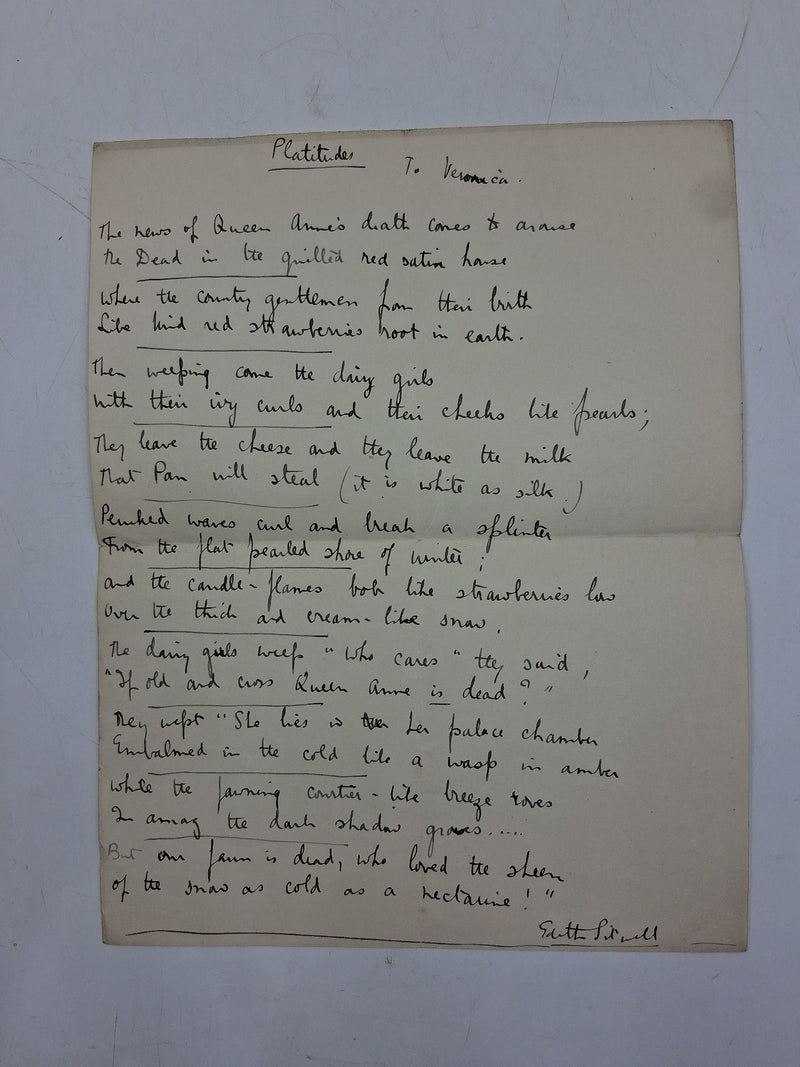 Platitudes
To Veronica.
The news of Queen Anne's death comes to arouse
The Dead in the quilled red satin house
Where the country gentlemen from their birth
Like kind red strawberries root in earth.
Then weeping come the dairy girls
With their ivy curls and their cheeks like pearls;
They leave the cheese and they leave the milk
That Pan will steal (it is white as silk.)
Peruked waves curl and break a splinter
From the flat pearled shore of winter;
and the candle-flames bob like strawberries low
Over the thick and cream-like snow.
The dairy girls weep "Who cares" they said,
"If old and cross Queen Anne is dead?"
They wept "She lies in her palace chamber
Embalmed in the cold like a wasp in amber
While the fawning courtier-like breeze roves
In among the dark shadow groves.....
But our faun is dead, who loved the sheen
of the snow as cold as a nectarine!"
Edith Sitwell